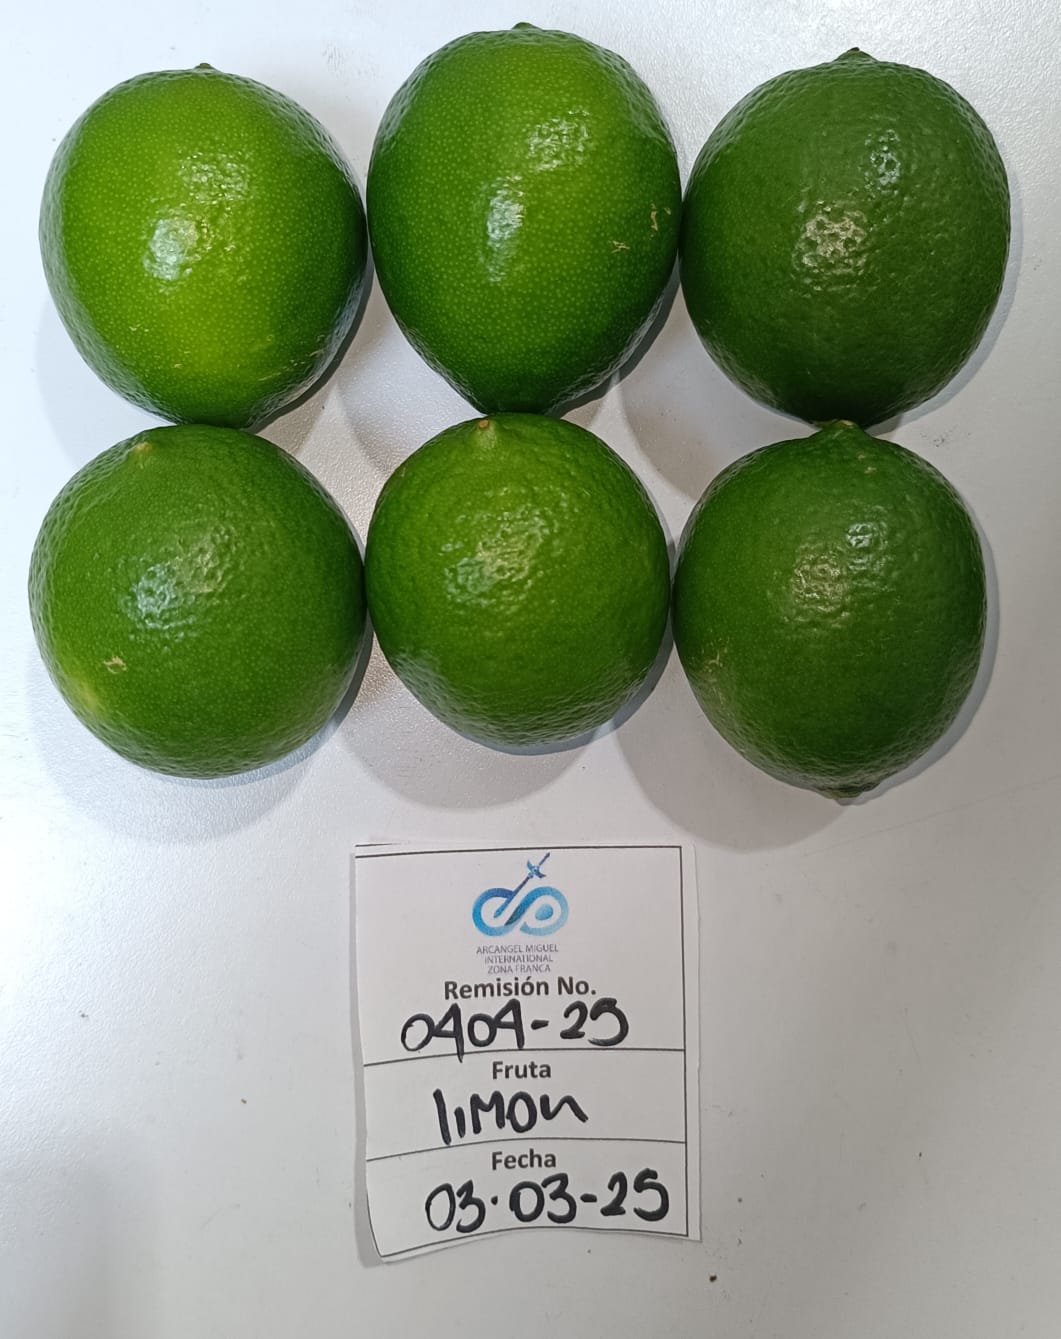 ARCANGEL MIGUEL
INTERNATIONAL
ZONA FRANCA
Remisión No.
0404-25
Fruta
limon
Fecha
03·03-25